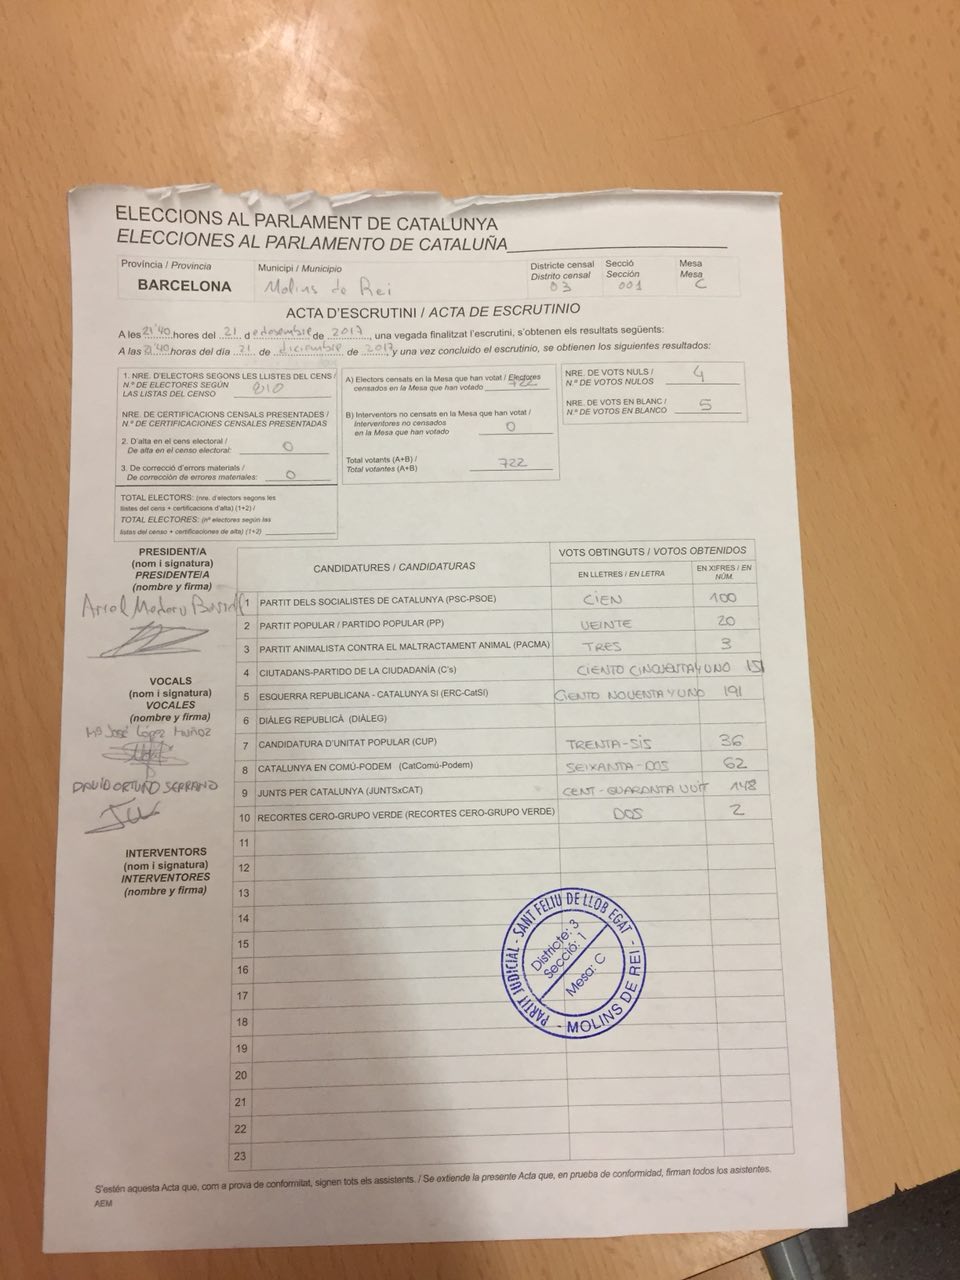 ELECCIONS AL PARLAMENT DE CATALUNYA
ELECCIONES AL PARLAMENTO DE CATALUÑA
Província / Provincia
BARCELONA
Municipi / Municipio
Molins de Rei
Districte censal
Distrito censal
03
Secció
Sección
001
Mesa
Mesa
C
ACTA D'ESCRUTINI / ACTA DE ESCRUTINIO
A les 21'40 hores del 21 de desembre de 2017, una vegada finalitzat l'escrutini, s'obtenen els resultats següents:
A las 21'40 horas del día 21 de diciembre de 2017, y una vez concluido el escrutinio, se obtienen los siguientes resultados:
1. NRE. D'ELECTORS SEGONS LES LLISTES DEL CENS /
N.º DE ELECTORES SEGÚN
LAS LISTAS DEL CENSO 810
NRE. DE CERTIFICACIONS CENSALS PRESENTADES /
N.º DE CERTIFICACIONES CENSALES PRESENTADAS
2. D'alta en el cens electoral /
De alta en el censo electoral: 0
3. De correcció d'errors materials /
De corrección de errores materiales: 0
TOTAL ELECTORS: (nre. d'electors segons les
llistes del cens + certificacions d'alta) (1+2) /
TOTAL ELECTORES: (nº electores según las
listas del censo + certificaciones de alta) (1+2)
A) Electors censats en la Mesa que han votat / Electores
censados en la Mesa que han votado 722
B) Interventors no censats en la Mesa que han votat /
Interventores no censados
en la Mesa que han votado 0
Total votants (A+B) /
Total votantes (A+B) 722
NRE. DE VOTS NULS /
N.º DE VOTOS NULOS 4
NRE. DE VOTS EN BLANC /
N.º DE VOTOS EN BLANCO 5
PRESIDENT/A
(nom i signatura)
PRESIDENTE/A
(nombre y firma)
VOCALS
(nom i signatura)
VOCALES
(nombre y firma)
Mª José López Muñoz
DAVID ORTUÑO SERRANO
INTERVENTORS
(nom i signatura)
INTERVENTORES
(nombre y firma)
CANDIDATURES / CANDIDATURAS
VOTS OBTINGUTS / VOTOS OBTENIDOS
EN LLETRES / EN LETRA
EN XIFRES / EN NÚM.
1 PARTIT DELS SOCIALISTES DE CATALUNYA (PSC-PSOE) CIEN 100
2 PARTIT POPULAR / PARTIDO POPULAR (PP) VEINTE 20
3 PARTIT ANIMALISTA CONTRA EL MALTRACTAMENT ANIMAL (PACMA) TRES 3
4 CIUTADANS-PARTIDO DE LA CIUDADANÍA (C's) CIENTO CINCUENTA Y UNO 151
5 ESQUERRA REPUBLICANA - CATALUNYA SÍ (ERC-CatSí) CIENTO NOVENTA Y UNO 191
6 DIÀLEG REPUBLICÀ (DIÀLEG)
7 CANDIDATURA D'UNITAT POPULAR (CUP) TRENTA-SIS 36
8 CATALUNYA EN COMÚ-PODEM (CatComú-Podem) SEIXANTA-DOS 62
9 JUNTS PER CATALUNYA (JUNTSxCAT) CENT-QUARANTA VUIT 148
10 RECORTES CERO-GRUPO VERDE (RECORTES CERO-GRUPO VERDE) DOS 2
11
12
13
14
15
16
17
18
19
20
21
22
23
PARTIT JUDICIAL - SANT FELIU DE LLOB EGAT - MOLINS DE REI -
Districte: 3
Secció: 1
Mesa: C
S'estén aquesta Acta que, com a prova de conformitat, signen tots els assistents. / Se extiende la presente Acta que, en prueba de conformidad, firman todos los asistentes.
AEM